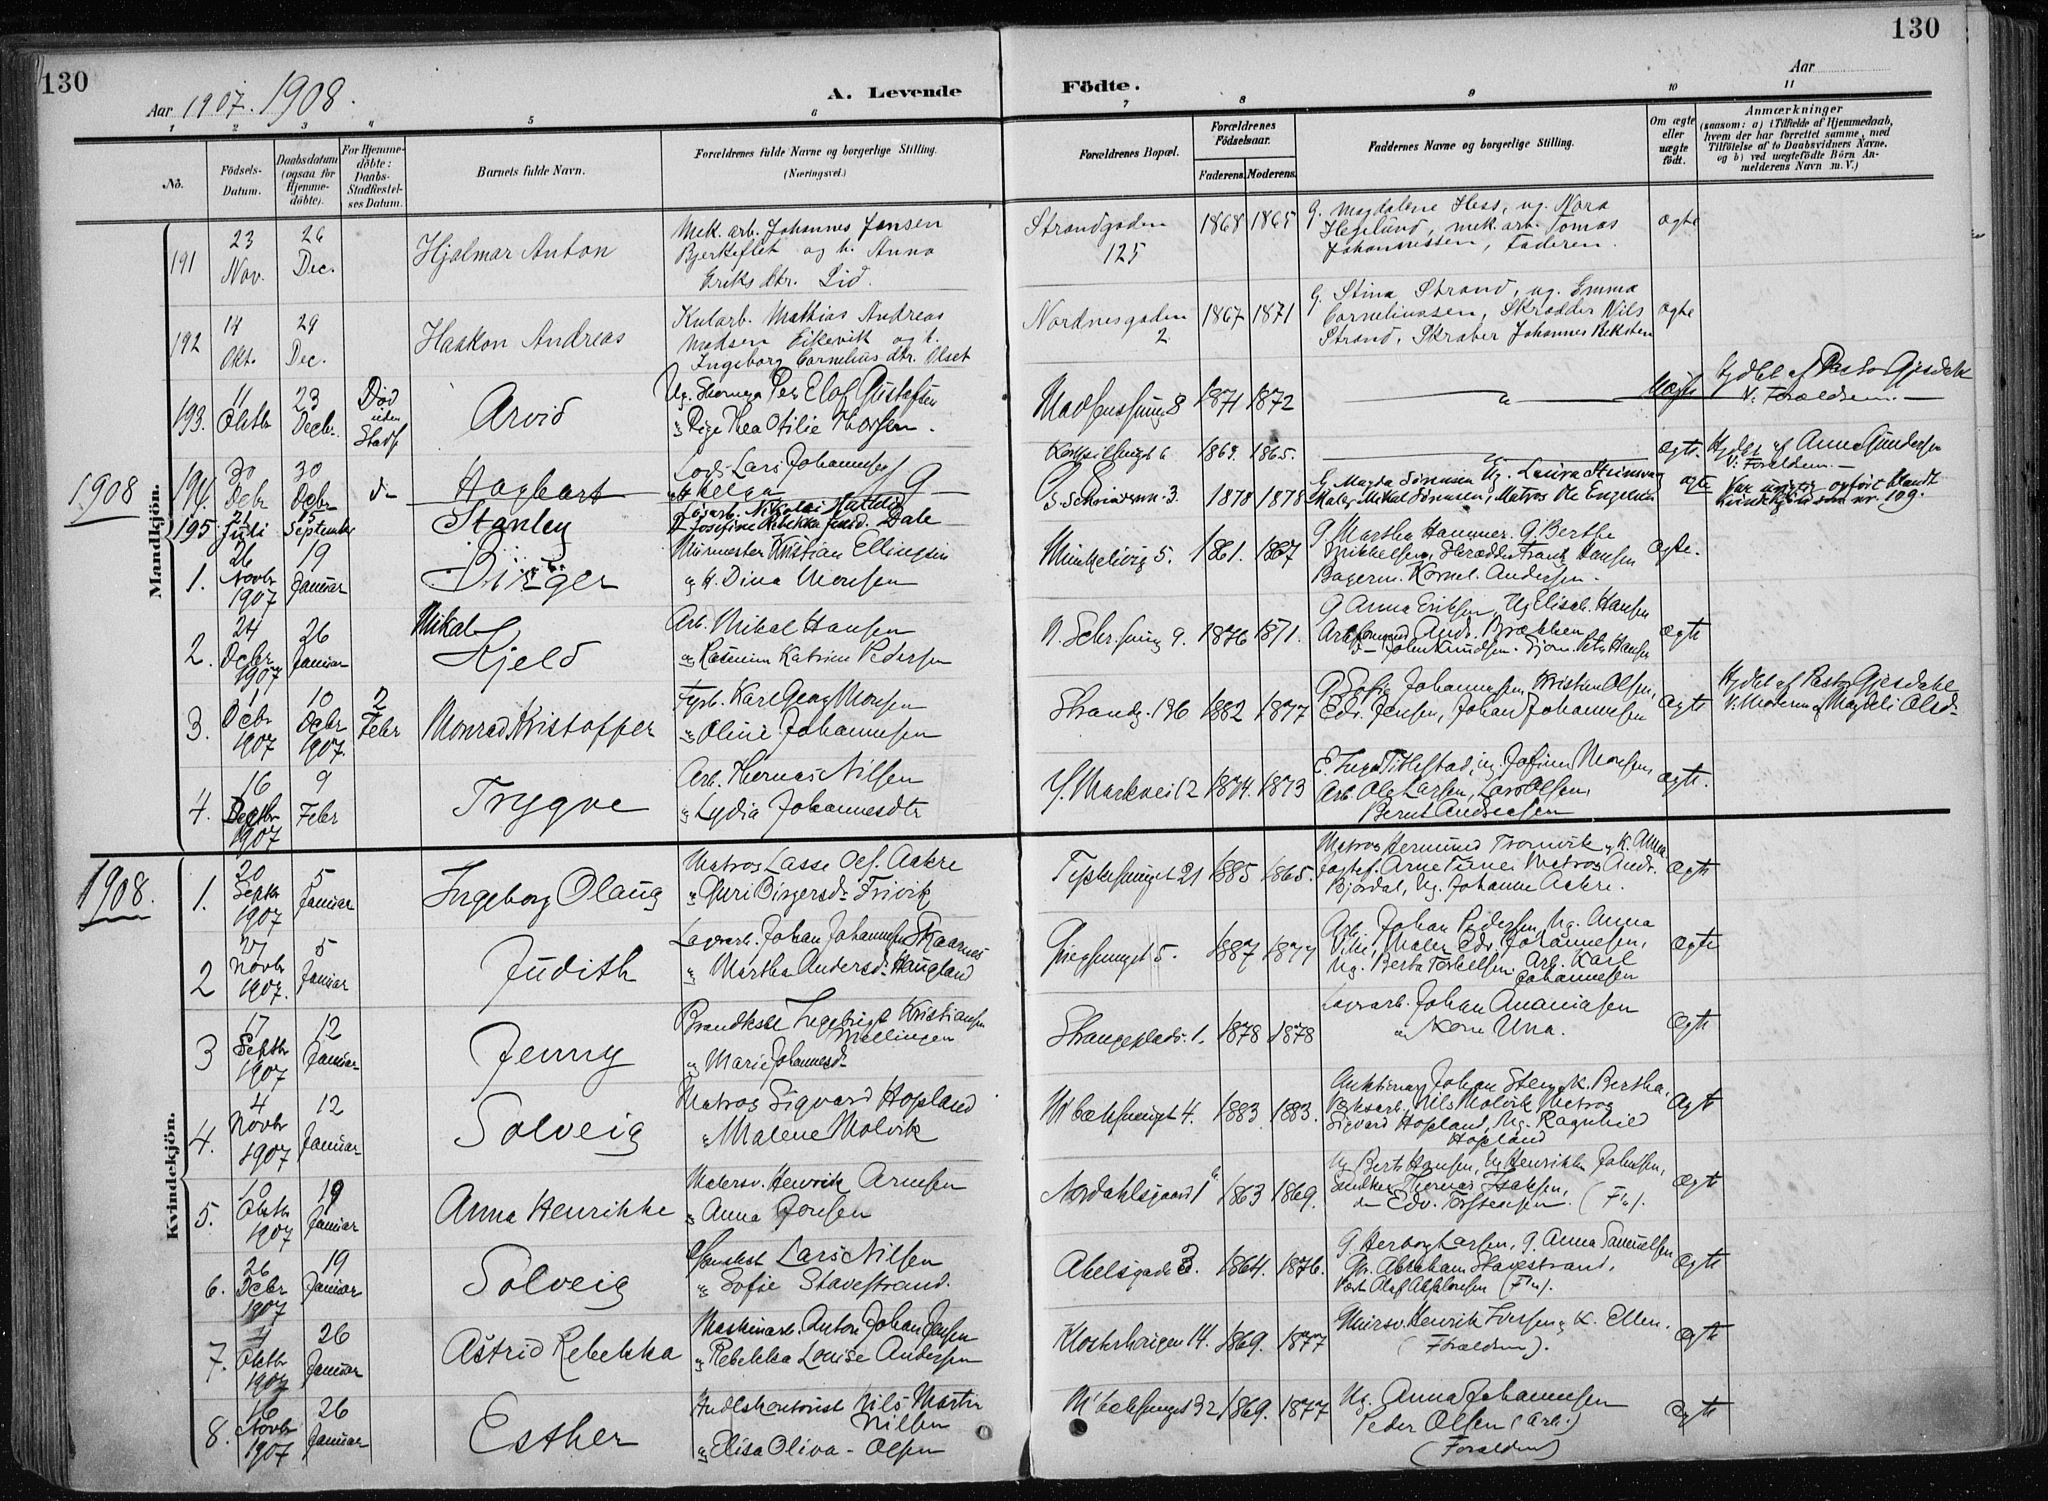 130
130
Aar 1907. 1908.
A. Levende
Födte.
Aar
1 2 3 4 5 6 7 8 9 10 11
No.
Födsels-
Datum.
Daabsdatum
(ogsaa for
Hjemme-
döbte).
For Hjemme-
döbte:
Daabs-
Stadfæstel-
ses Datum.
Barnets fulde Navn.
Forældrenes fulde Navne og borgerlige Stilling.
(Næringsvei.)
Forældrenes Bopæl.
Forældrenes
Födselsaar.
Faderens. Moderens.
Faddernes Navne og borgerlige Stilling.
Om ægte
eller
uægte
født.
Anmærkninger
(saasom: a) i Tilfælde af Hjemmedaab,
hvem der har forrettet samme, med
Tilføielse af to Daabsvidners Navne,
og b) ved uægtefödte Börn An-
melderens Navn m. V.)
Mandkjön.
191 23 Nov. 26 Dec. Hjalmar Anton
Mek. arb. Johannes Jansen
Bjerkeflet og h. Anna
Eriks dtr. Lid.
Strandgaden
125
1868 1865
G. Magdalene Hess, ug. Nora
Heglund, mek. arb. Tomas
Johannessen, Faderen.
ægte
192 14 Okt. 29 Dec. Haakon Andreas
Kularb. Mathias Andreas
Madsen Eikevik og h.
Ingeborg Cornelius dtr. Ulset
Nordnesgaden
2.
1867 1871
G. Stina Strand, ug. Emma
Corneliussen, Skrædder Nils
Strand, Skraber Johannes Reksten
ægte
193. 11 Oktbr 23 Decbr. Død
uden
Stadf
Arvid
Ug. Per Elof Gustafsen
Pige Thea Otilie Thorsen.
8 1871 1872
Uægte
Hjdbt af Pastor Gjesdahl
V. Forældrene. —
1908
194 30 Dcbr 30 Dcbr d— Hagbart
Lars Johannesen
Helga
6 1863. 1865.
ægte.
Hjdbt af Anna Gundersen
V: Forældrene. —
195 21 Juli 15 September Stanley
Nikolai Mathias
Josefine Rebekka Dale
3. 1878 1878
G. Magda Sönnesen Ug. Laura
Maler Mikal Sönnesen, Matros Ole Engesen
ægte
Var urigtig opført blandt
Kvindekjön som nr. 109.
1. 26 Novbr 1907 19 Januar Birger
Murmester Kristian Ellingsen
og H. Dina Monsen
Munkelivsg 5. 1861. 1867
G Martha Hammer. G. Berthe
Mikkelsen, Skrædder Frantz Hansen
Bagerm. Kornel. Andersen.
ægte.
2. 24 Dcbr 1907 26 Januar Mikal
Kjeld
Arb. Mikal Hansen
og Rasmine Katrine Pedersen
9. 1876 1871.
G Anna Eriksen, Ug Elisab. Hansen
Arbformand Andr. Brækken
d— John Knudsen. Peter Hansen
ægte
3. 1 Dcbr 1907 10 Dcbr 1907. 2 Febr Monrad Kristoffer
Fyrb. Karl Georg Monsen
og Oline Johannesen
Strandg. 196 1882 1877
G Sofie Johannesen, Kristen Olsen,
Edv. Jensen, Johan Johannesen
Ægte
Hjdbt af Pastor Gjesdahl
V: Moderen og Magdeli Olsd—
4. 16 Decbr 1907 9 Febr Trygve
Arb. Thomas Nilsen
og Lydia Johannesdtr
Y. Markvei 12 1874. 1873
E. Inga Titlestad, ug. Josefine Monsen,
Arb. Ole Larsen, Lars Olsen,
Bernt Andreasen
ægte.
1908.
Kvindekjön.
1. 20 Septbr 1907 5 Januar Ingeborg Olaug
Matros Lasse Aakre
og Guri Birgersd— Trivik
21 1885 1865.
Matros Hermund Tronvik og K. Anna
Arne Matros Andr.
Bjørdal, Ug. Johanne Aakre.
Ægte
2 27 Novbr 1907. 5 Januar Judith
Lagerarb. Johan Johannesen Skaarnes
og Martha Andersd. Haugland
5. 1887 1877
Arb. Johan Pedersen, Ug. Anna
Maler Edv. Johannesen,
Ug. Berta Torkelsen. Arb. Karl
Johannesen
ægte
3 17 Septbr 1907 12 Januar Jenny
Ingebrigt Kristiansen
Mellingen
og Marie Johannesd—
Strangeplads. 1. 1878 1878
Lagerarb. Johan Ananiasen
og Kone Una.
Ægte
4. 4 Novbr 1907 12 Januar Solveig
Matros Sigvard Hopland
og Malene Molvik
4. 1883 1883.
Johan Steen, K. Bertha.
Verksarb. Nils Molvik, Matros
Sigvard Hopland, Ug. Ragnhild
Hopland
Ægte
5. 10 Oktbr 1907 19 Januar Anna Henrikke
Malersv. Henrik Arnesen
og Anna Jonsen
Nordahlsgaard 1 b 1863 1869.
Ug Berta Hansen, Ug Henrikke Johnsen,
Snedker Thomas Isaksen,
d— Edv. Torstensen. (Fn).
Ægte
6. 26 Dcbr 1907 19 Januar Solveig
Lars Nilsen
og Sofie Stavestrand.
Abelsgade 3. 1864. 1876.
G. Herborg Larsen, G. Anna Samuelsen
Abraham Stavestrand,
Olaf (Fn).
ægte
7. 4 Oktbr 1907 26 Januar Astrid Rebekka
Maskinarb. Anton Johan Jensen
og Rebekka Louise Andersen
Klosterhaugen 14. 1869. 1877
Mursv. Henrik og K. Ellen.
(Forældrene).
ægte
8. 16 Novbr 1907 26 Januar Esther
Nils Martin
Nilsen
og Elisa Oliva Olsen
32 1869. 1877
Ug. Anna Johannesen
Peder Olsen (Arb.)
(Forældrene)
ægte